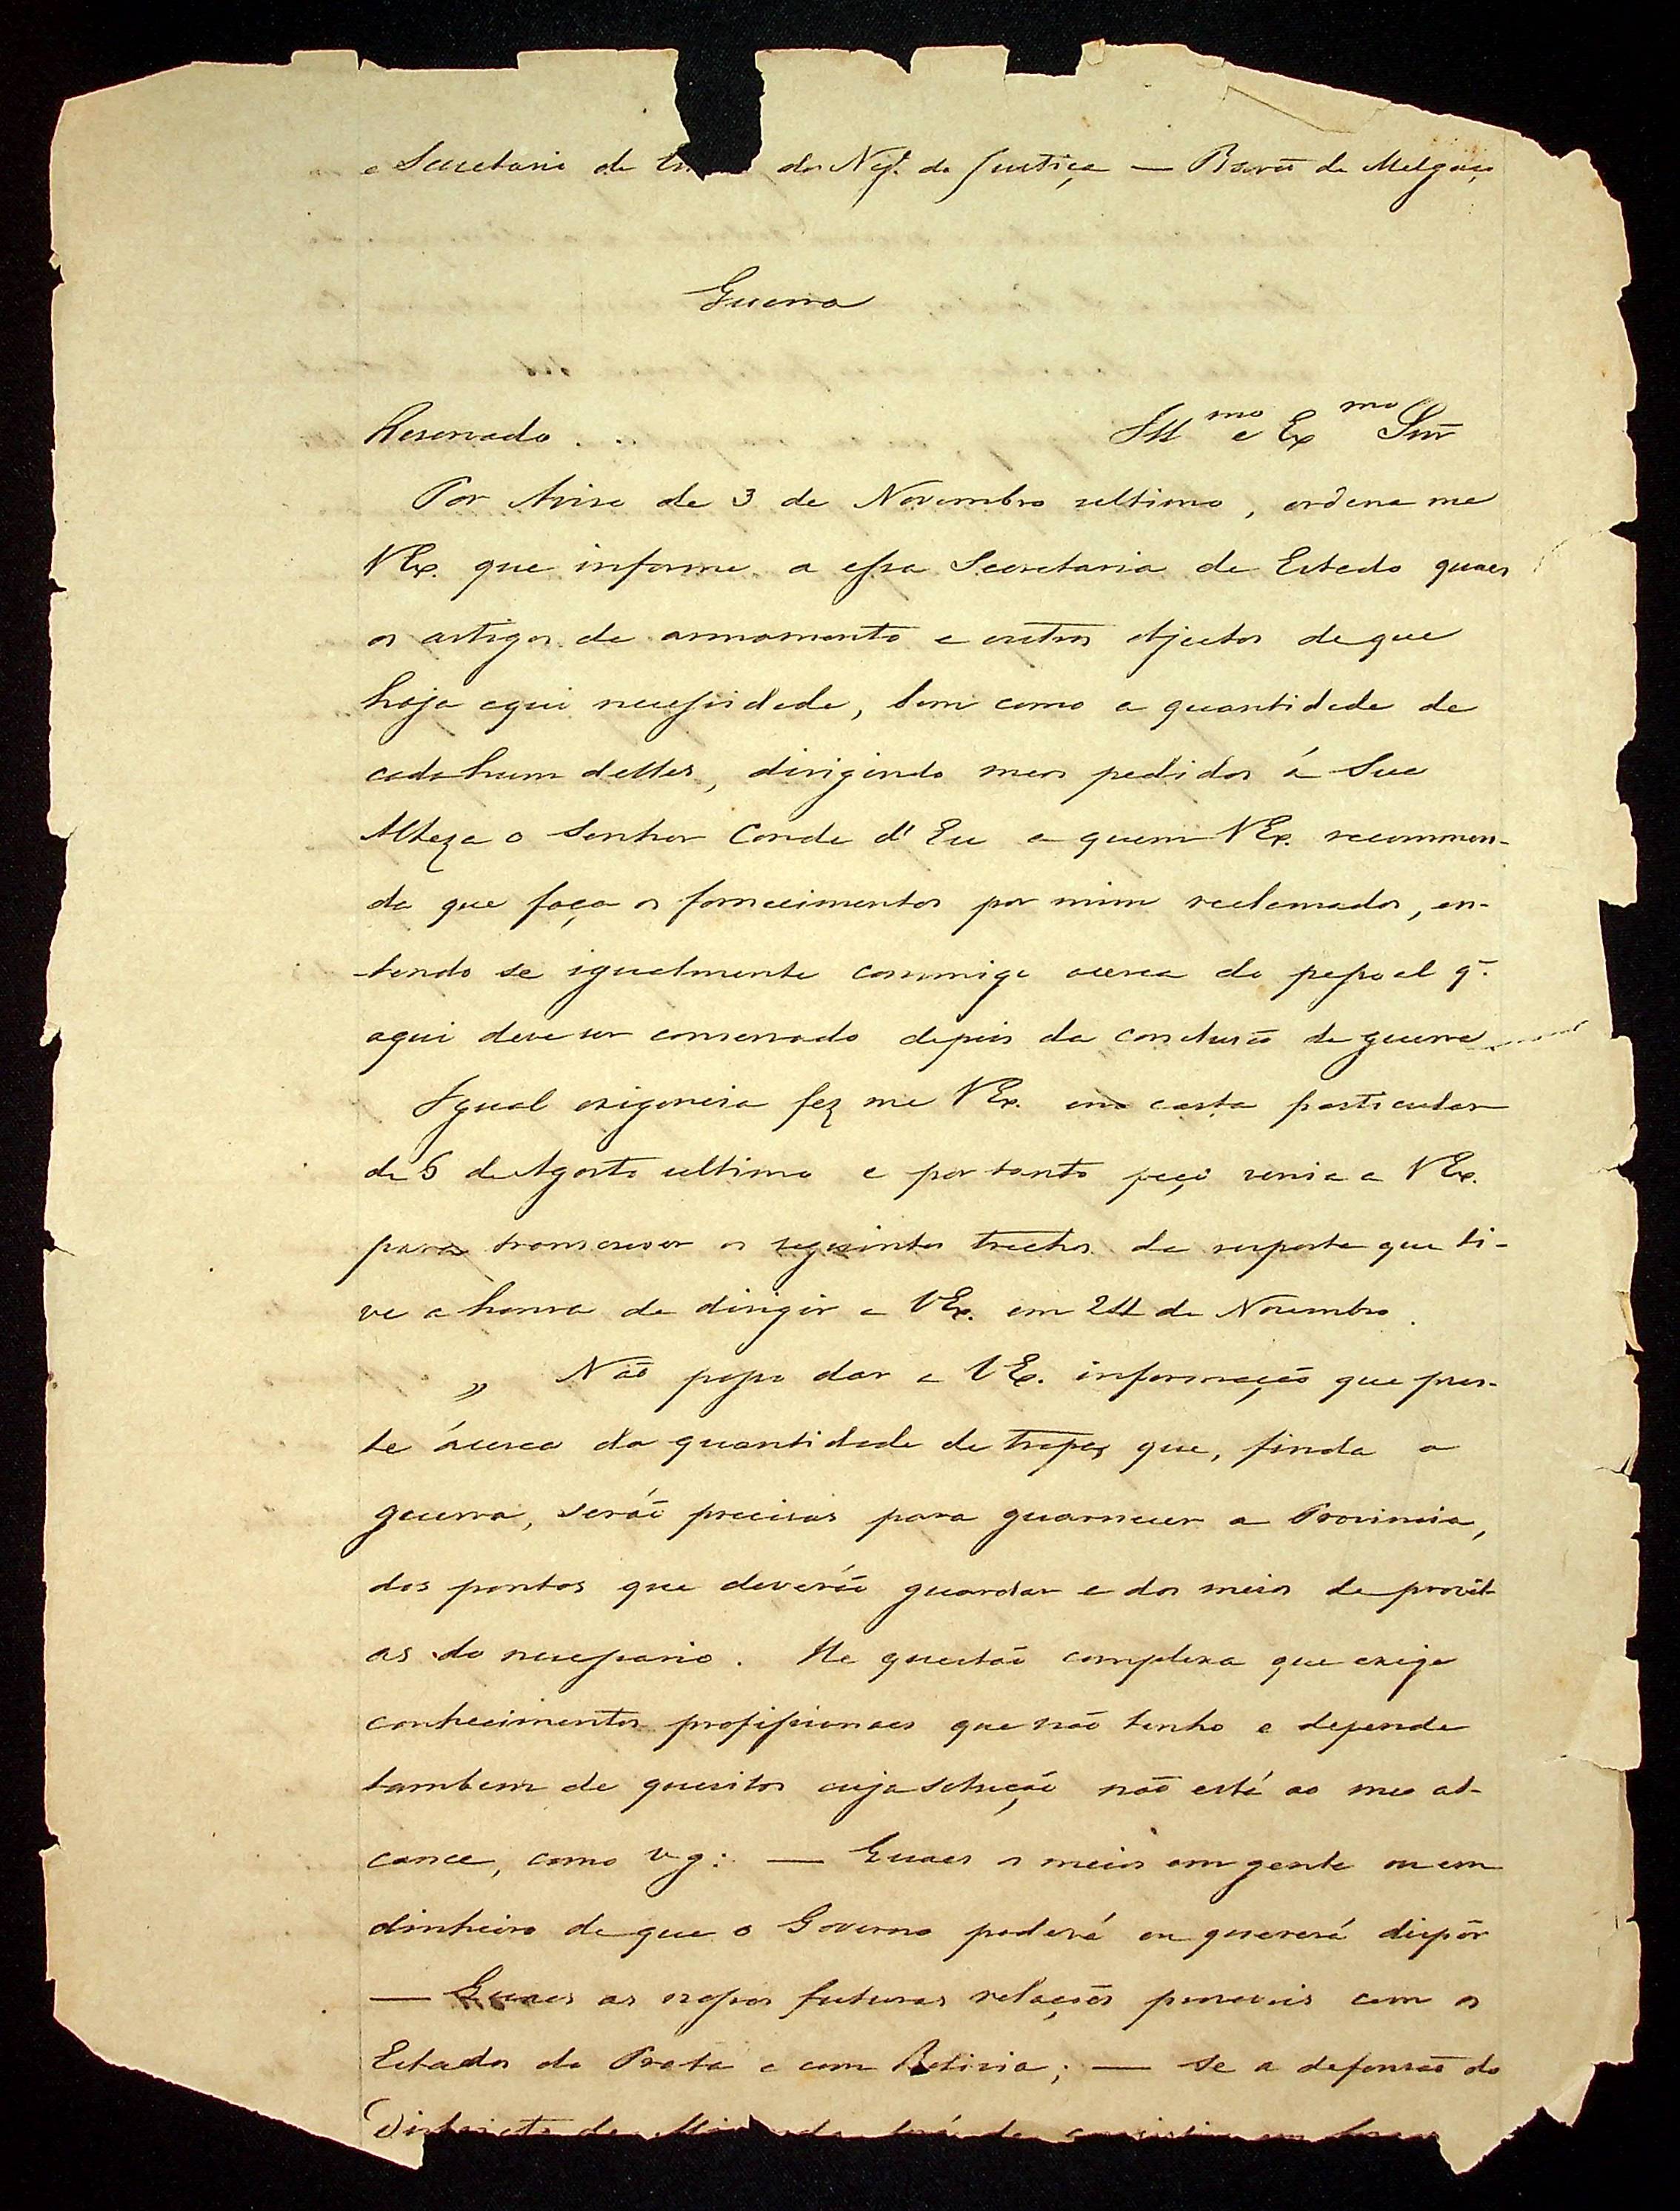 e Secretario de dos Neg.º da Justiça — Barão de Melgaço
Guerra
Reservado. Ill mo e Ex mo Snr
Por Aviso de 3 de Novembro ultimo, ordena me
VEx. que informe a essa Secretaria de Estado quaes
os artigos de armamento e outros objectos de que
haja aqui necessidade, bem como a quantidade de
cada hum delles, dirigindo meos pedidos á Sua
Alteza o Senhor Conde d'Eu a quem VEx. recommen-
da que faça os fornecimentos por mim reclamados, en-
tendo se igualmente commigo acerca do pessoal q̃.
aqui deve ser conservado depois da conclusão da guerra
Igual exigencia fez me VEx. em carta particular
de 6 de Agosto ultimo e por tanto peço venia a VEx.
para transcrever os seguintes trechos da resposta que ti-
ve a honra de dirigir a VEx. em 24 de Novembro.
" Não posso dar a VEx. informação que pres-
te ácerca da quantidade de tropas que, finda a
guerra, serão precisas para guarnecer a Provincia,
dos pontos que deverão guardar e dos meios de provêl-
as do necessario. He questão complexa que exige
conhecimentos profissionaes que não tenho e depende
tambem de quesitos cuja solução não está ao meo al-
cance, como v g: — Quaes os meios em gente ou em
dinheiro de que o Governo poderá ou quererá dispôr
— Quaes as nossas futuras relações provaveis com os
Estados do Prata e com Bolivia; — se a defensão do
Districto de